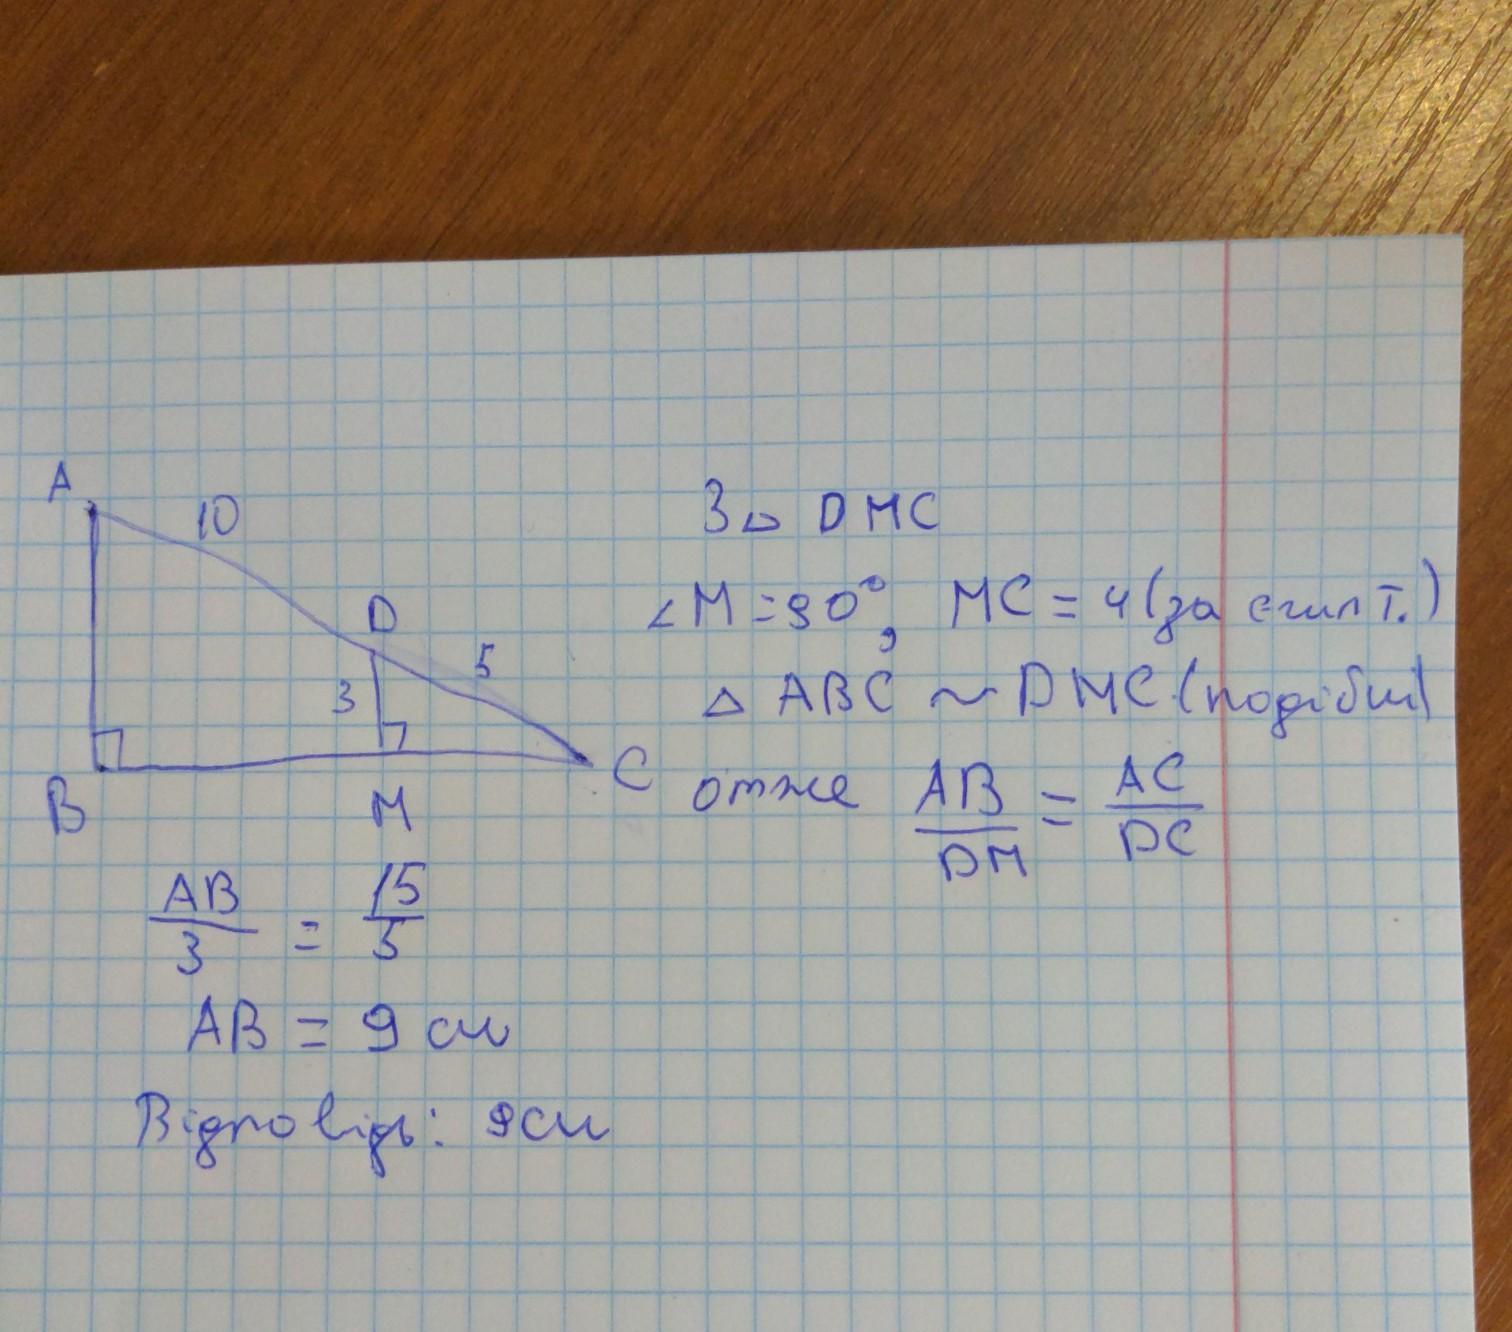 A
10
D
5
3
B
M
C
З△ DMC
∠M=90°, MC=4(за єгип т.)
△ ABC ~ DMC (подібні)
отже AB/DM = AC/DC
AB/3 = 15/5
AB = 9 см
Відповідь: 9см